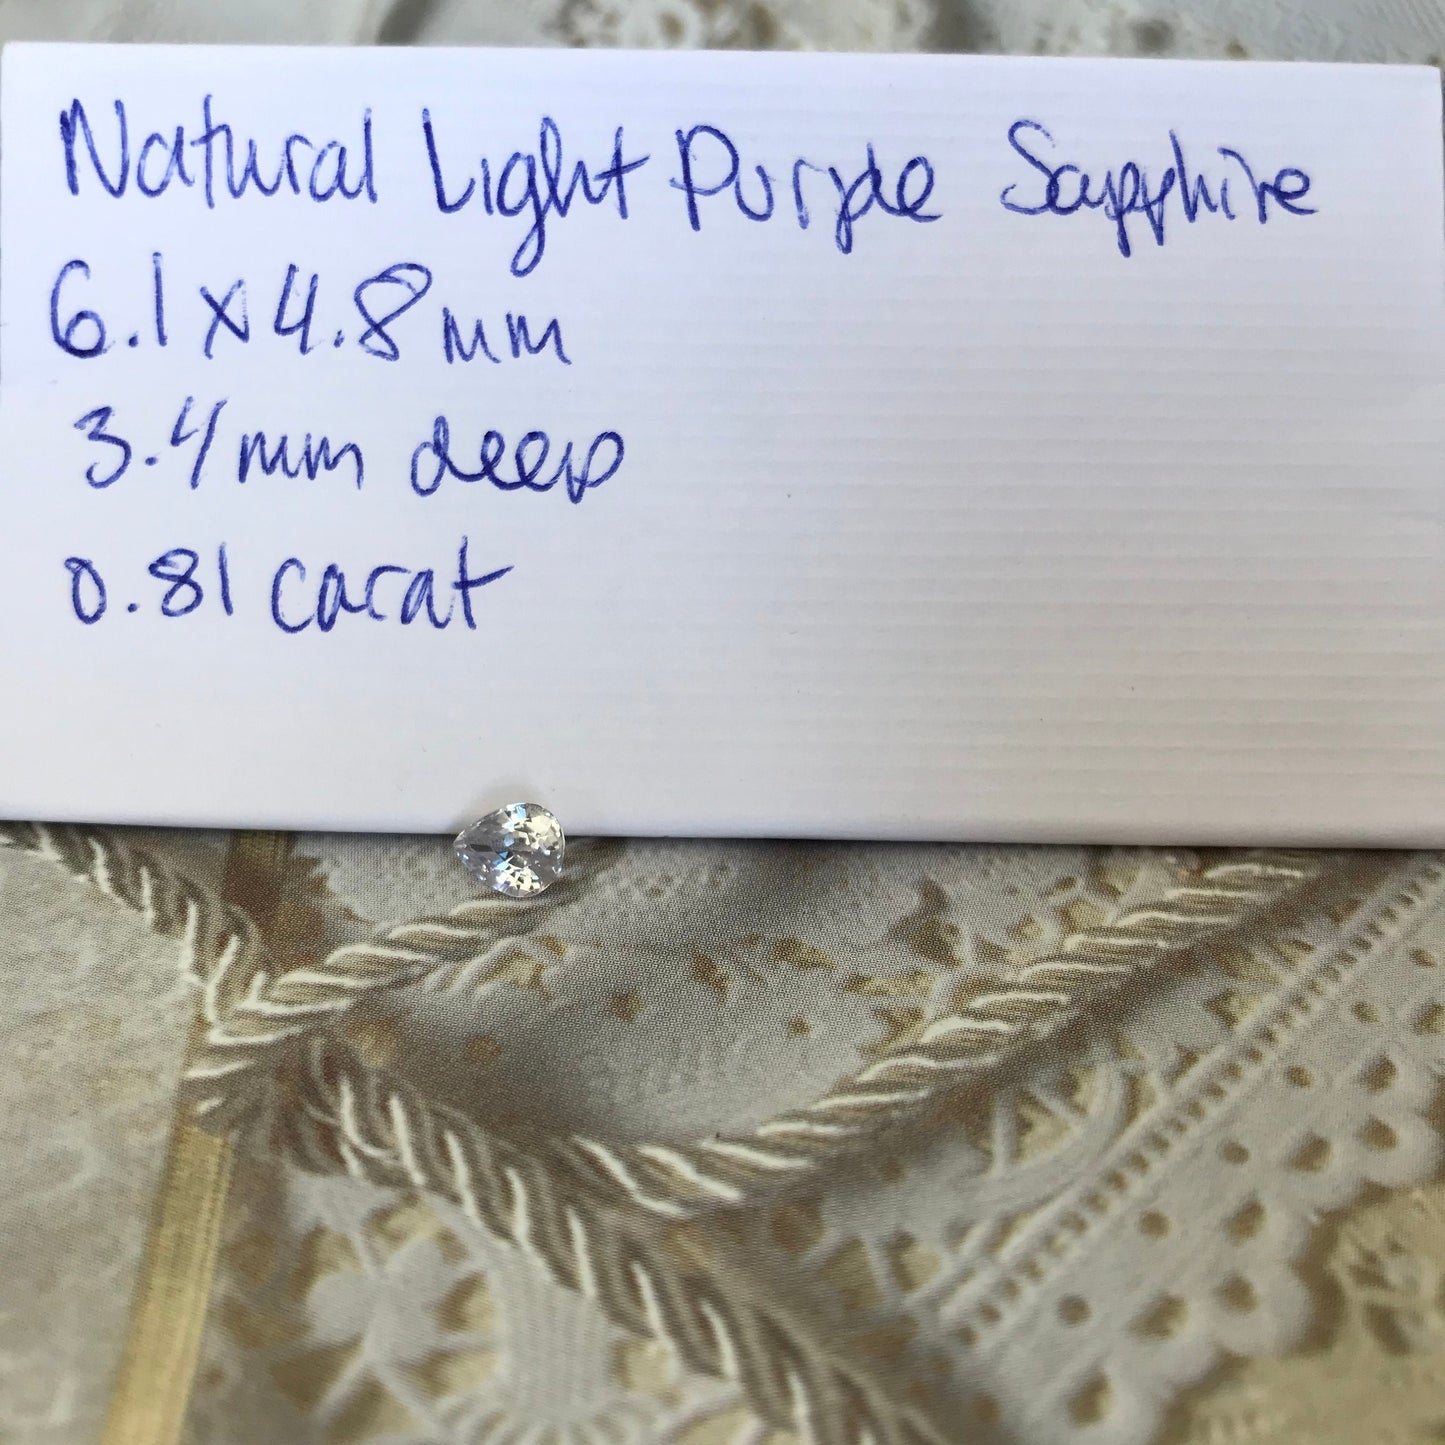 Natural Light Purple Sapphire
6.1x4.8mm
3.4mm deep
0.81 carat